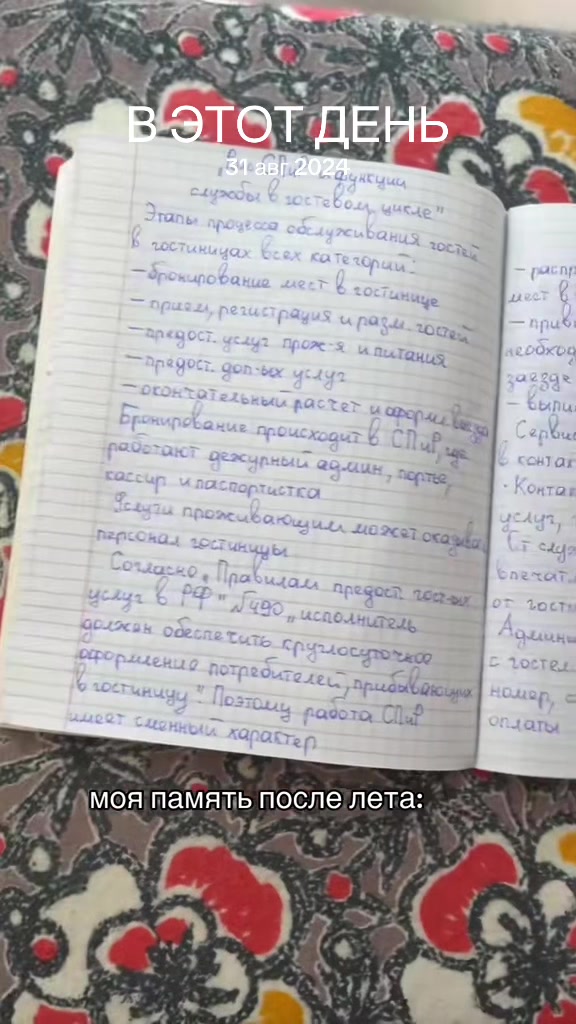 В ЭТОТ ДЕНЬ
31 авг. 2024
функции
службы в гостевом цикле"
Этапы процесса обслуживания гостей
в гостиницах всех категорий:
– бронирование мест в гостинице
– прием, регистрация и разм. гостей
– предост. услуг прож-я и питания
– предост. доп-ых услуг
– окончательный расчет и оформл. выезда
Бронирование происходит в СПиР, где
работают дежурный админ, портье,
кассир и паспортистка
Услуги проживающим может оказывать
персонал гостиницы
Согласно „Правилам предост. гост-ых
услуг в РФ" №490 „исполнитель
должен обеспечить круглосуточное
оформление потребителей, прибывающих
в гостиницу". Поэтому работа СПиР
имеет сменный характер
– распр
мест в
– прив
необход
заезде
– выпи
Сервис
в контак
· Контак
услуг,
От служ
впечатл
от гости
Админи
с гостем
номер, с
оплаты
моя память после лета: